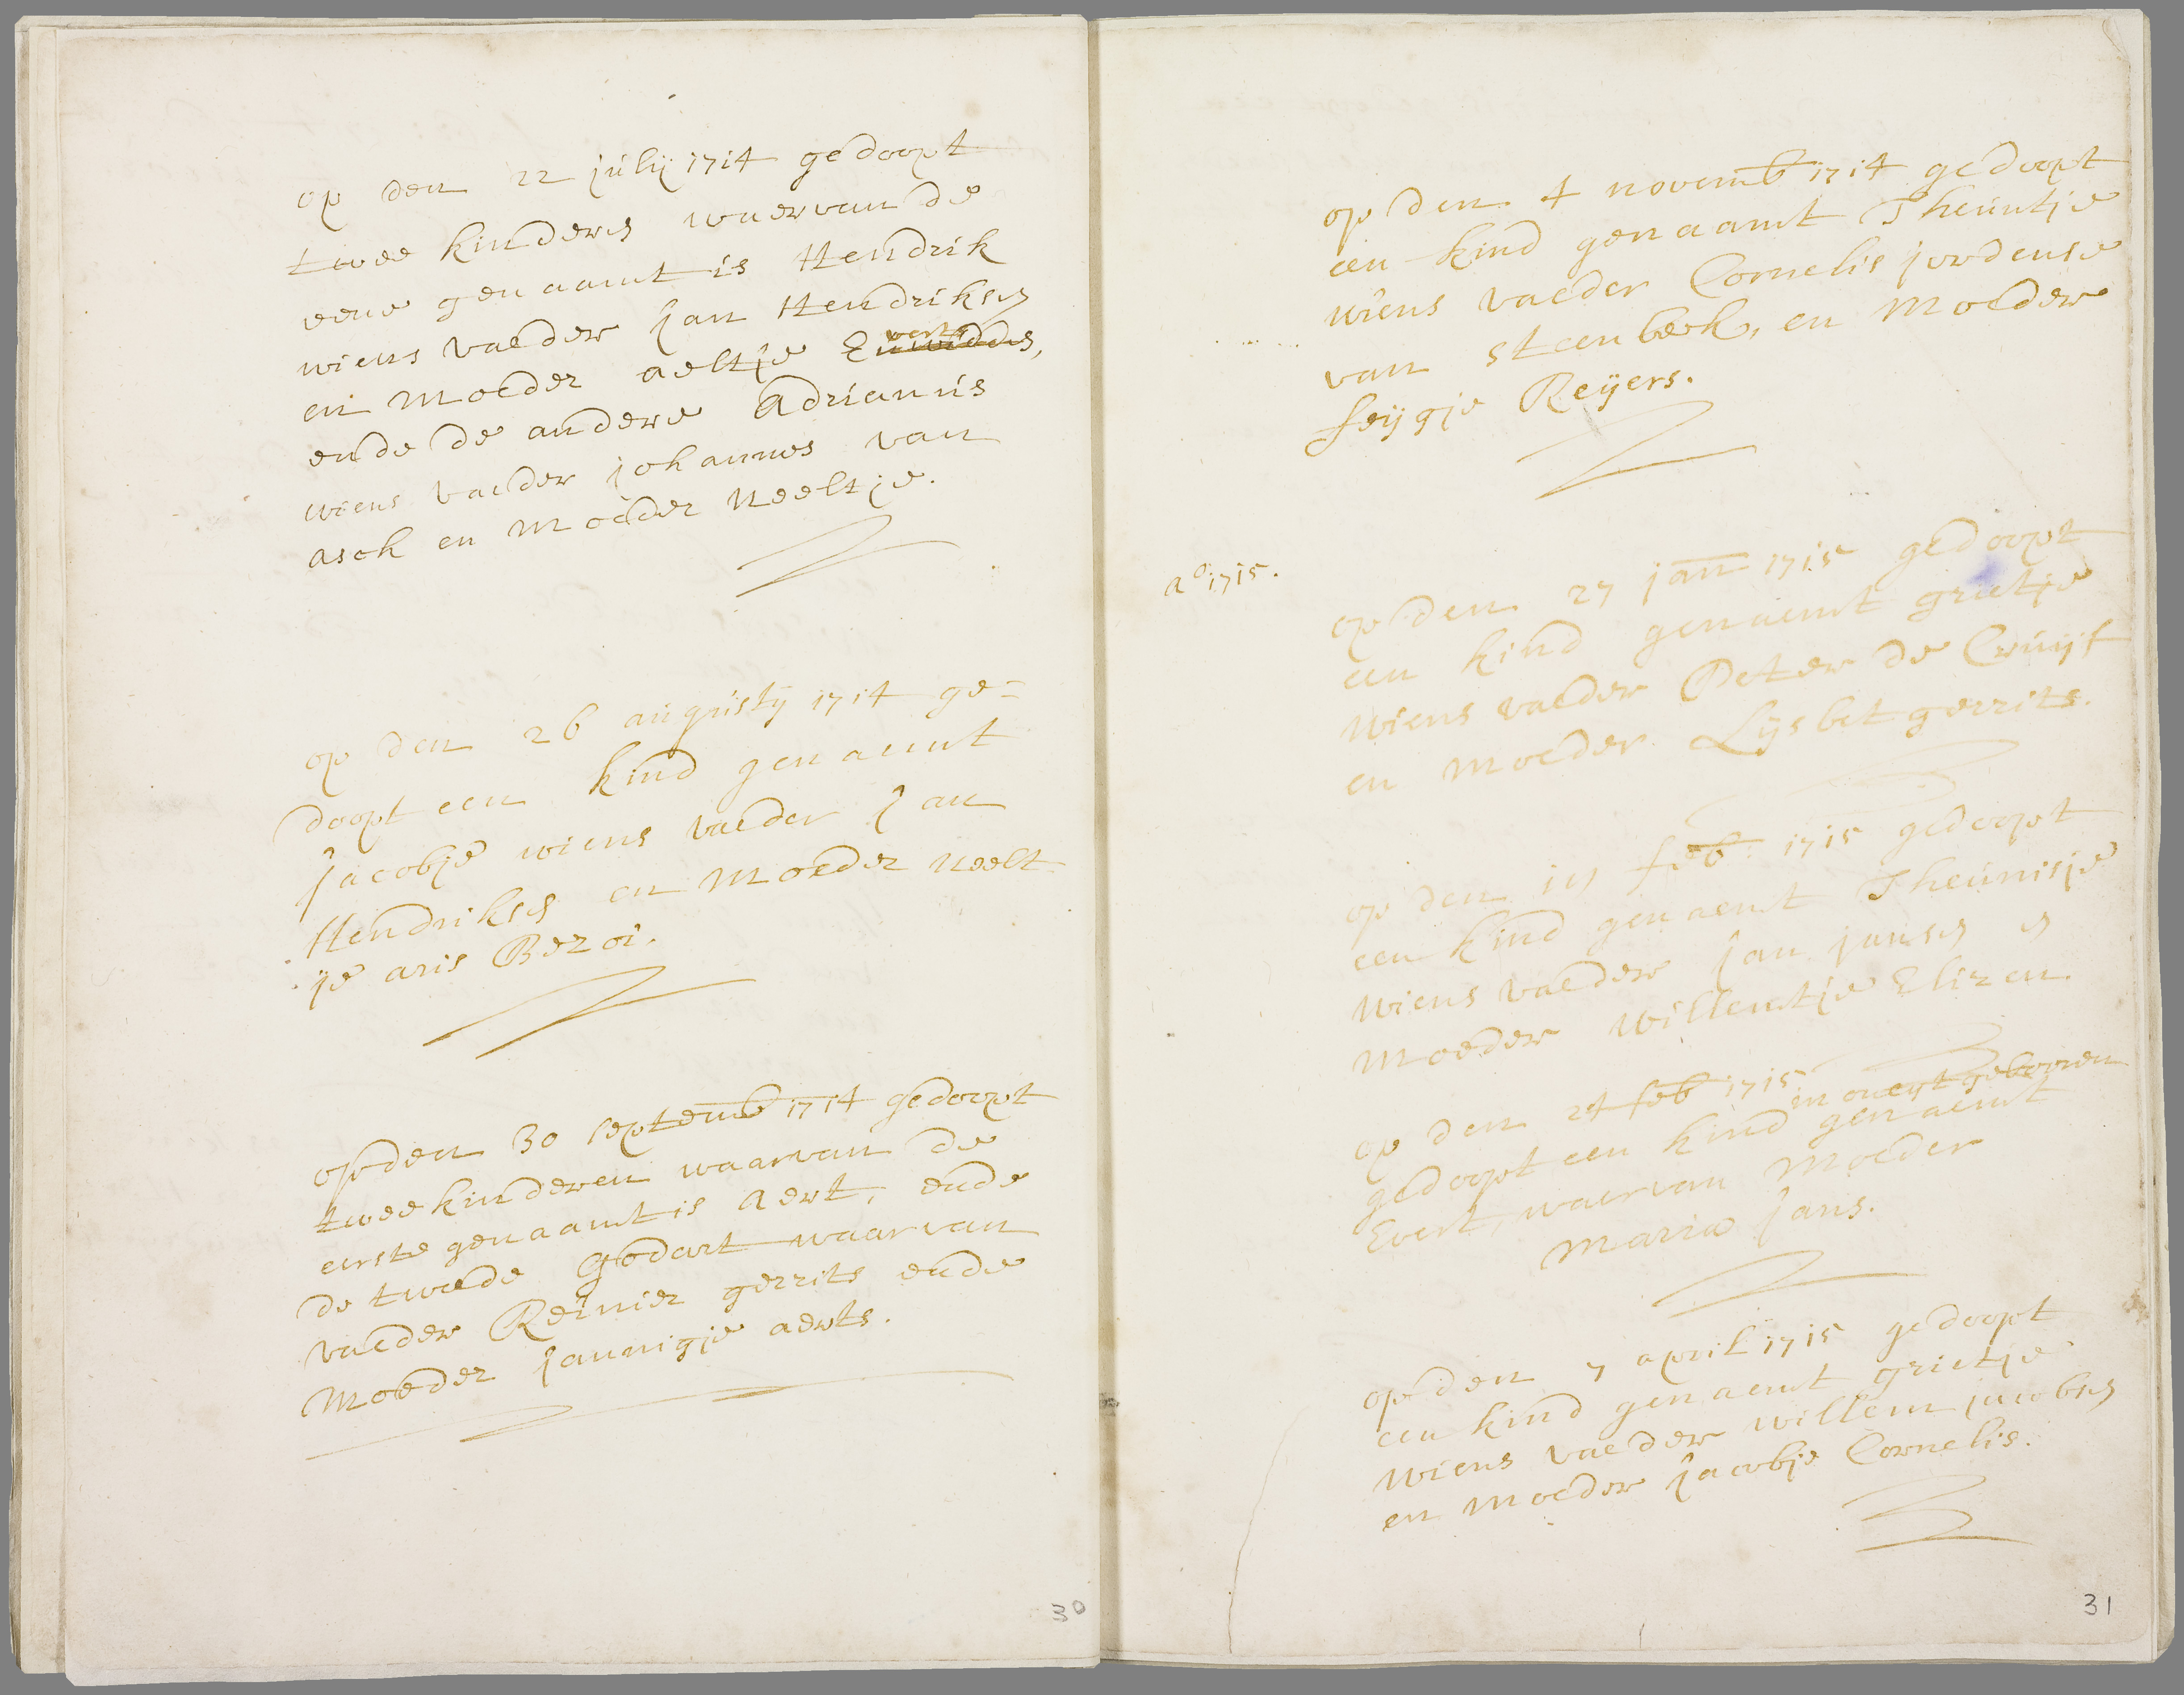 op den 22 julij 1714 gedoopt
twee kinders waervan de
eene genaamt is Hendrik
wiens vaeder Jan Hendriksen
en Moeder aeltje
ende de andere Adrianus
wiens vaeder johannes van
asch en Moeder Neeltje.
op den 26 augusty 1714 ge=
doopt een kind genaemt
Jacobje wiens vaeder Jan
Hendriksen en Moeder Neelt
je aris Bezoi.
op den 30 septemb 1714 gedoopt
twee kinderen waarvan de
eerste genaamt is Aert, ende
de tweede Godart waarvan
vaeder Reinier gerrits ende
Moeder Jannigje aerts.
30
op den 4 novemb 1714 gedoopt
een kind genaamt Theuntje
wiens vaeder Cornelis jordense
van steenbeek, en Moeder
feijgje Reijers.
Ao 1715.
op den 27 jan 1715 gedoopt
een kind genaemt grietje
wiens vaeder Peter de Cruijf
en Moeder Lijsbet gerrits.
op den feb 1715 gedoopt
een kind genaemt Theunisje
wiens vaeder Jan jansen en
Moeder Willemtje Elizen
op den 24 feb 1715
in onegt gebooren
gedoopt een kind genaemt
Evert, waervan Moeder
Maria Jans.
op den 7 april 1715 gedoopt
een kind genaemt grietje
wiens vaeder willem jacobsen
en Moeder Jacobje Cornelis.
31